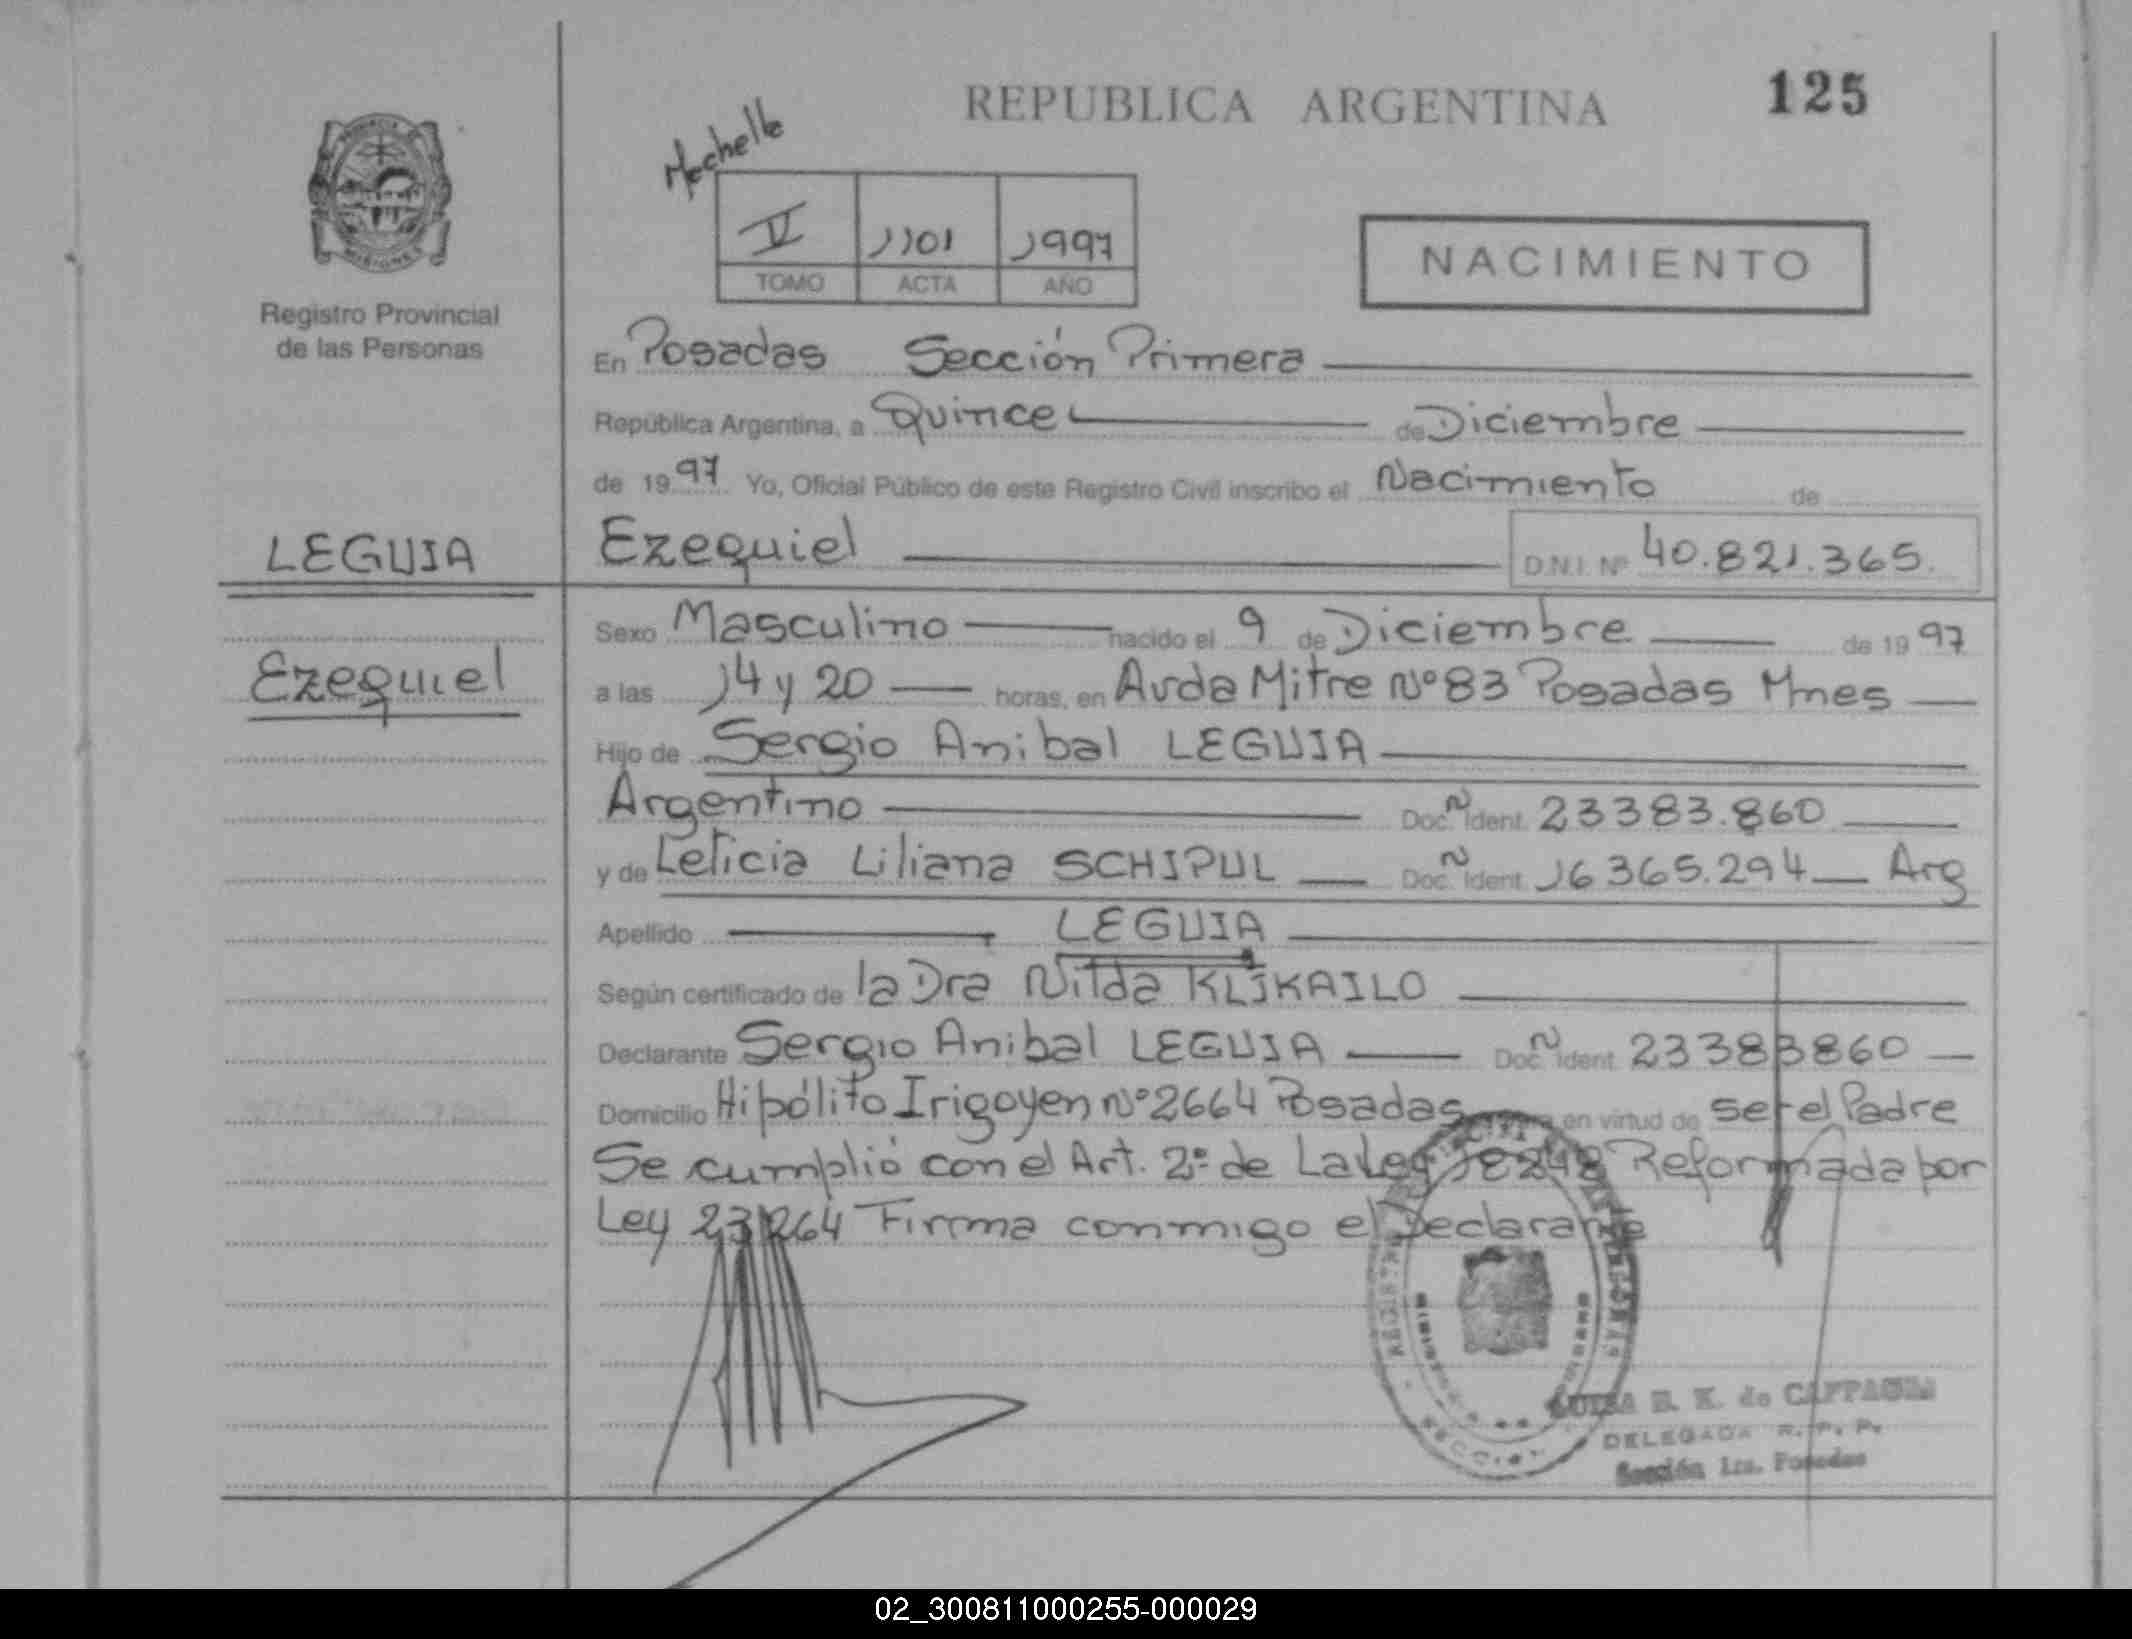 REPUBLICA ARGENTINA
125
Mechelle
PROVINCIA DE
MISIONES
Registro Provincial
de las Personas
IV 1101 1997
TOMO ACTA AÑO
NACIMIENTO
En Posadas Sección Primera
República Argentina, a Quince de Diciembre
de 1997 Yo, Oficial Público de este Registro Civil inscribo el Nacimiento de
LEGUIA
Ezequiel
Ezequiel D.N.I. Nº 40.821.365.
Sexo Masculino nacido el 9 de Diciembre de 1997
a las 14 y 20 horas, en Avda Mitre Nº 83 Posadas Mnes
Hijo de Sergio Anibal LEGUIA
Argentino Doc. Ñ Ident. 23383.860
y de Leticia Liliana SCHIPUL Doc. Ñ Ident. 16365.294 Arg
Apellido LEGUIA
Según certificado de la Dra Nilda KLIKAILO
Declarante Sergio Anibal LEGUIA Doc. Ñ Ident. 23383860
Domicilio Hipólito Irigoyen Nº 2664 Posadas en virtud de ser el Padre
Se cumplió con el Art. 2º de La Ley 18248 Reformada por
Ley 23264 Firma conmigo el Declarante
B. K. de
DELEGADA R. P. P.
Sección 1ra. Posadas
02_300811000255-000029